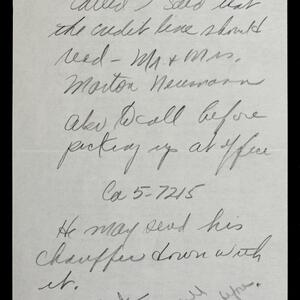 Called & said that
the credit line should
read - Mr + Mrs.
Morton Neumann
also to call before
picking up at office
Ca 5-7215
He may send his
chauffer down with
it.